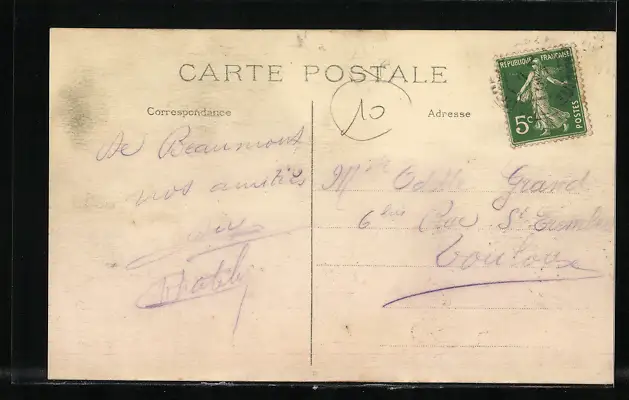 CARTE POSTALE
Correspondance
Adresse
10
RÉPUBLIQUE FRANÇAISE
5c
POSTES
De Beaumont
nos amitiés
Mlle Odette Grand
6 bis Rue St
Toulouse